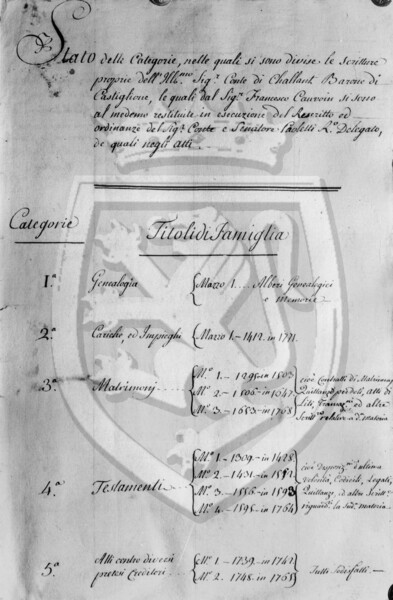 Stato delle Categorie, nelle quali si sono divise le scritture
proprie dell'Ill.mo Sig.r Conte di Challant Barone di
Castiglione, le quali dal Sig.r Francesco si sono
al medemo restituite in esecuzione del Rescritto ed
ordinanze del Sig.r Conte e Senatore Paoletti R.o Delegato,
de quali negli atti.
Categorie Titoli di Famiglia
1.a Genealogia { Mazzo 1. ... Alberi Genealogici
e memorie
2.a Cariche, ed Impieghi { Mazzo 1. - 1412. in 1771.
3.a Matrimonj { M.o 1. - 1295. in 1503 cioè Contratti di Matrimonj
M.o 2. - 1505. in 1647 Quittanze per doti, atti di
M.o 3. - 1653. in 1768 Liti, ed altre
Scritt.re relative a d.a materia
4.a Testamenti { M.o 1. - 1309. in 1428 cioè d'ultima
M.o 2. - 1431. in volontà, Codicili, Legati,
M.o 3. - 1556. in 1593 Quittanze, ed altre Scritt.e
M.o 4. - 1595. in 1764 riguard.ti la sud.a materia.
5.a Atti contro diversi { M.o 1. - 1739. in 1742
pretesi Creditori { M.o 2. 1748. in 1765 Tutti sodisfatti. -